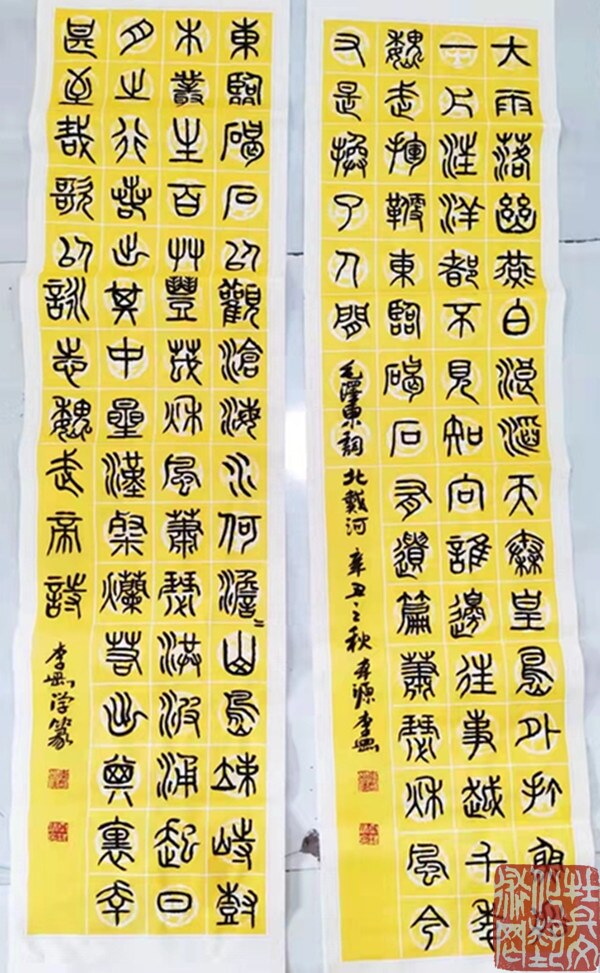 大雨落幽燕白浪滔天秦皇島外打魚船
一片汪洋都不見知向誰邊往事越千年
魏武揮鞭東臨碣石有遺篇蕭瑟秋風今
又是換了人間 毛澤東詞 北戴河 辛丑之秋 李
東臨碣石以觀滄海水何澹〻山島竦峙樹
木叢生百艸豐茂秋風蕭瑟洪波涌起日
月之行若出其中星漢粲爛若出其裏幸
甚至哉歌以詠志魏武帝詩 李 学篆